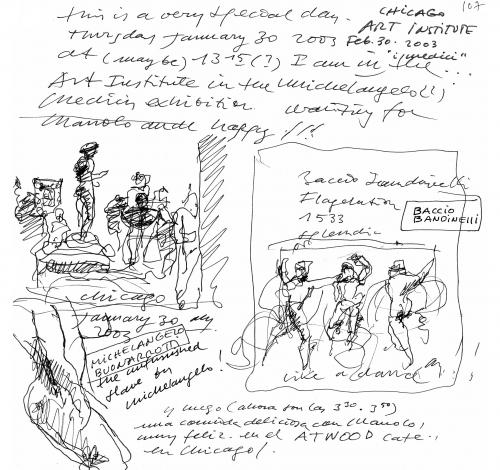 107
this is a very special day.
CHICAGO
ART INSTITUTE
Thursday January 30 2003 Feb. 30. 2003
at (maybe) 13 15 (?) I am in the "i medici"
Art Institute in the Michelangelo(?)
Medicis exhibition waiting for
Manolo and happy !!!
Baccio Bandinelli
Flagelation
1533
splendid
BACCIO
BANDINELLI
chicago
January 30
2003
MICHELANGELO
BUONARROTI
the unfinished
slave by
Michelangelo!
like a dance
y luego (ahora son las 3 30. 3 50)
una comida deliciosa con Manolo,
muy feliz. en el ATWOOD cafe.
en Chicago!